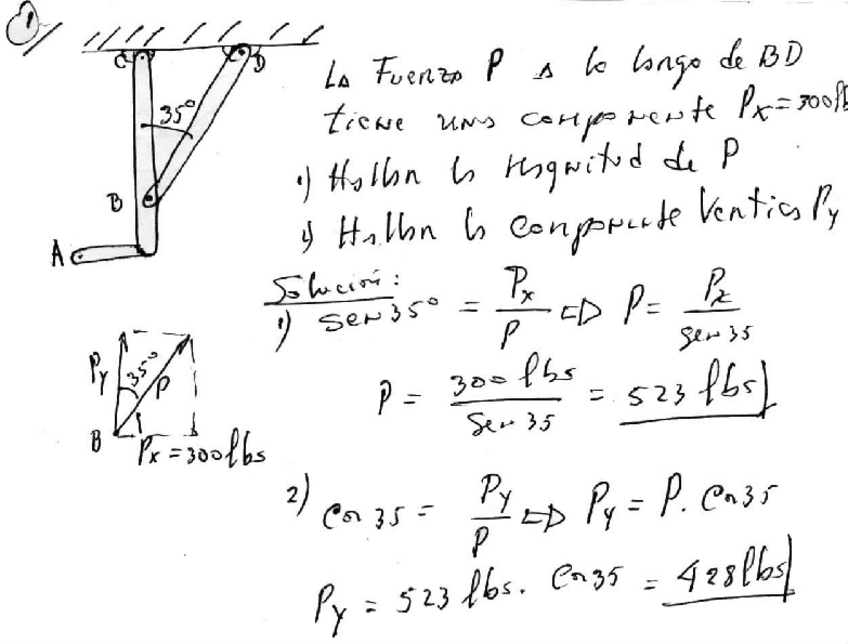 1)
C
D
35°
B
A
La Fuerza P a lo largo de BD
tiene una componente Px = 300 lb
1) Hallar la magnitud de P
2) Hallar la componente Vertical Py
Solución:
1) sen 35° = Px / P ⇒ P = Px / sen 35
P = 300 lbs / Sen 35 = 523 lbs
Py
35°
P
B
Px = 300 lbs
2) Cos 35 = Py / P ⇒ Py = P. Cos 35
Py = 523 lbs. Cos 35 = 428 lbs